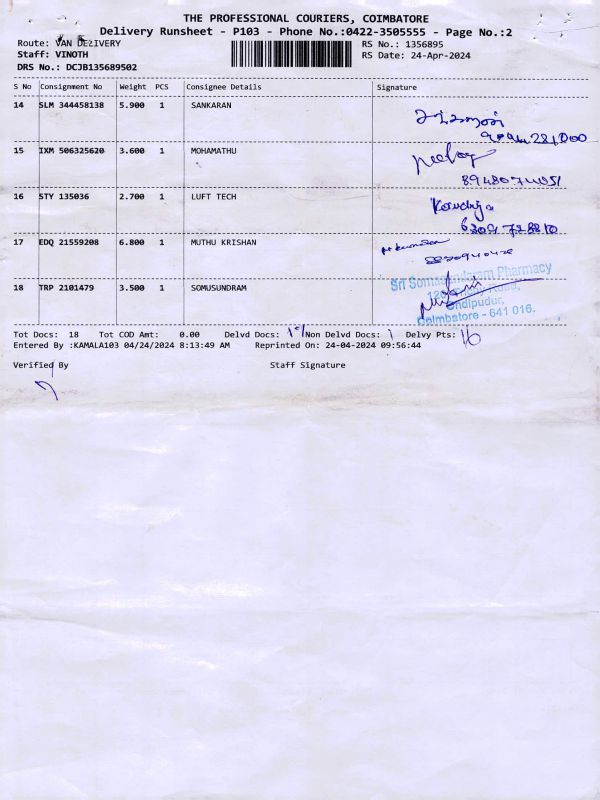 THE PROFESSIONAL COURIERS, COIMBATORE
Delivery Runsheet - P103 - Phone No.:0422-3505555 - Page No.:2
Route: VAN DEZIVERY RS No.: 1356895
Staff: VINOTH RS Date: 24-Apr-2024
DRS No.: DCJB135689502
S No Consignment No Weight PCS Consignee Details Signature
14 SLM 344458138 5.900 1 SANKARAN
15 IXM 506325620 3.600 1 MOHAMATHU
16 STY 135036 2.700 1 LUFT TECH
17 EDQ 21559208 6.800 1 MUTHU KRISHAN
18 TRP 2101479 3.500 1 SOMUSUNDRAM
Sri Somasundaram Pharmacy
Road,
Ondipudur,
Coimbatore - 641 016.
Tot Docs: 18 Tot COD Amt: 0.00 Delvd Docs: 17 Non Delvd Docs: 1 Delvy Pts: 16
Entered By :KAMALA103 04/24/2024 8:13:49 AM Reprinted On: 24-04-2024 09:56:44
Verified By Staff Signature